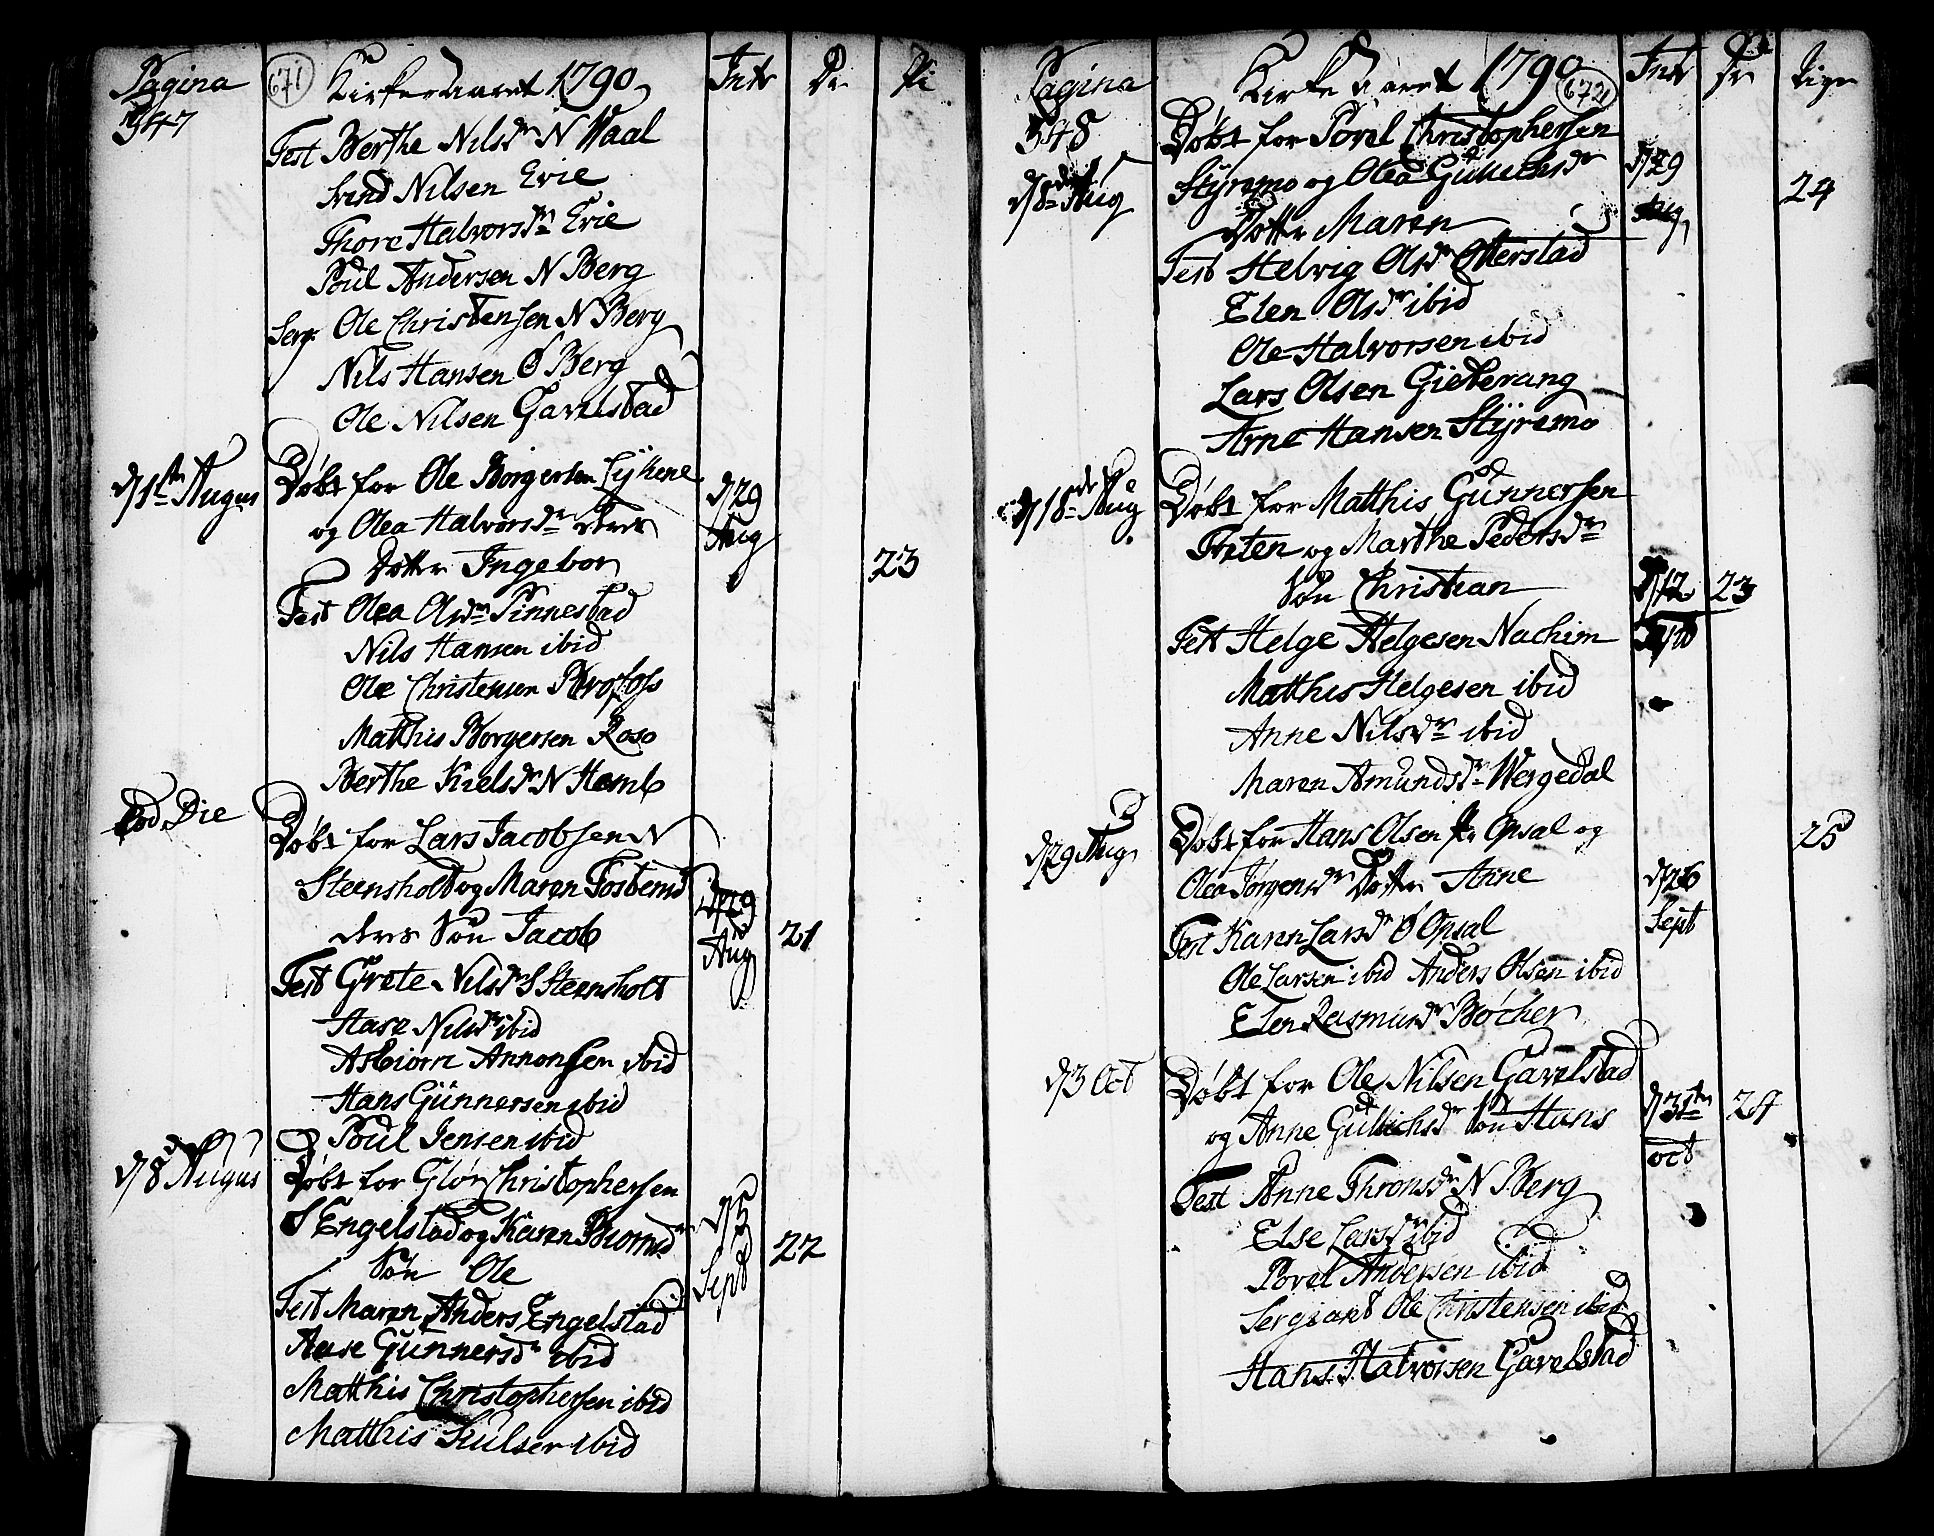 Pagina
547
671
Kirke Aaret 1790
Intr
Dr
Pi
Test Berthe Nilsdr N Waal
Svend Nilsen Evie
Thore Halvorsdr Evie
Poul Andersen N Berg
Serg. Ole Christensen N Berg
Nils Hansen Ø Berg
Ole Nilsen Gavelstad
d 1ste Augus
Døbt for Ole Borgersen Lykene
og Olea Halvorsdr deres
Dotter Ingebor
d 29
Aug
23
Test Olea Olsdr Pinnestad
Nils Hansen ibid
Ole Christensen Brofoss
Matthis Borgersen Roso
Berthe Kielsdr N Hemb
Eod Die
Døbt for Lars Jacobsen N
Steensholt og Maren Tostensd
deres Søn Jacob
d 29
Aug
21
Test Grete Nilsdr S Steensholt
Aase Nilsdr ibid
Asbiörn Annonsen ibid
Hans Gunnersen ibid
Poul Jensen ibid
d 8 Augus
Døbt for Glør Christophersen
S Engelstad og Karen Biornsdr
Søn Ole
d 5
Sept
22
Test Maren Anders Engelstad
Aase Gunnersdr ibid
Matthis Christophersen ibid
Matthis ibid
Pagina
548
Kirke Aaret 1790
672
Intr
Dr
Piger
d 8de Aug
Døbt for Povel Christophersen
Styremo og Olea Gulichsdr
Dotter Maren
d 29
Aug
24
Test Helvig Olsdr Otterstad
Elen Olsdr ibid
Ole Halvorsen ibid
Lars Olsen Gieterang
Arne Hansen Styremo
d 18de Aug
Døbt for Matthis Gunnersen
Freten og Marthe Pedersdr
Søn Christian
d 12
Sept
23
Test Helge Helgesen Nachim
Matthis Helgesen ibid
Anne Nilsdr ibid
Maren Amundsdr Wergedal
d 29 Aug
Døbt for Hans Olsen Opsal og
Olea Jørgensdr Dotter Anne
d 26
Sept
25
Test Karen Larsdr Ø Opsal
Ole Larsen ibid Anders Olsen ibid
Elen Rasmusdr Bøcher
d 3 Oct
Døbt for Ole Nilsen Gavelstad
og Anne Gullichsdr Søn Hans
d 31te
oct
24
Test Anne Thronsdr N Berg
Else Larsdr ibid
Povel Andersen ibid
Sergeant Ole Christensen ibid
Hans Halvorsen Gavelstad